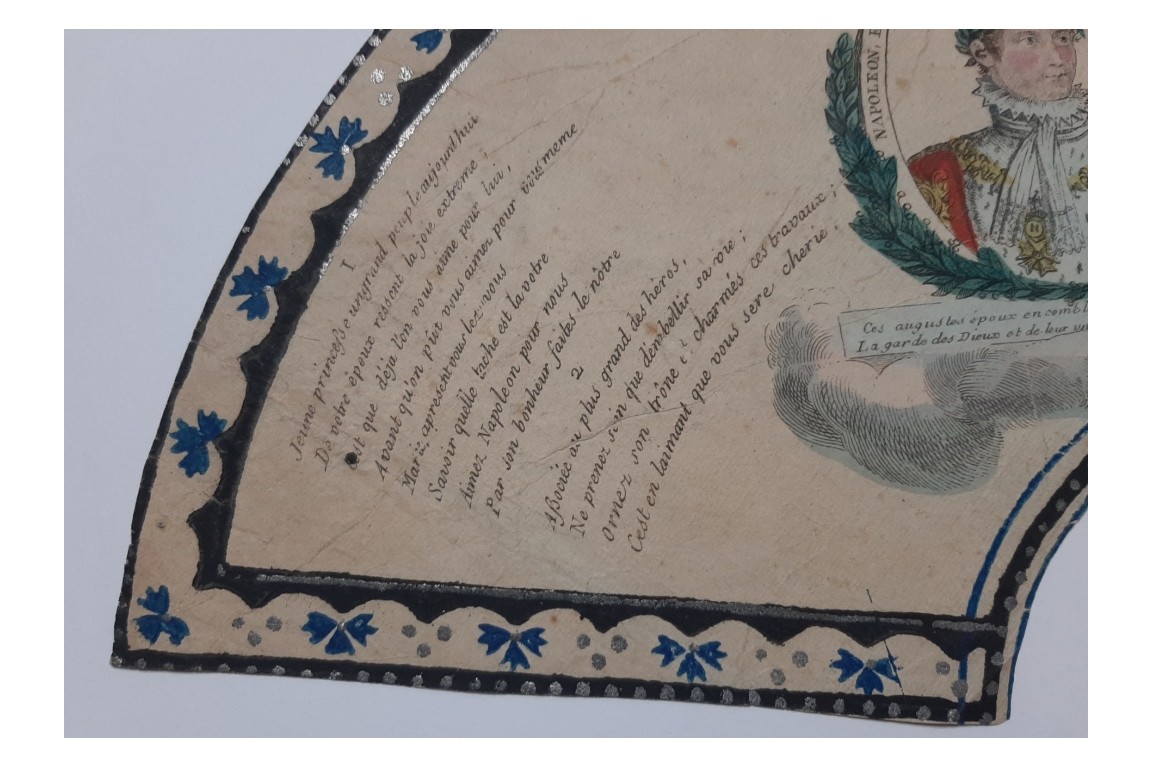 I
Jeune princesse ungrand peuple aujourdhui
De votre époux ressent la joie extreme,
Cest que déja l'on vous aime pour lui,
Avant qu'on p'ut vous aimer pour vous meme
Marie, apresent voulez-vous
Savoir quelle tache est la votre
Aimez Napoleon pour nous
Par son bonheur faites le nôtre
2
Aßociée au plus grand des héros,
Ne prenez soin que d'embellir sa vie;
Ornez son trône et charmés ces travaux;
Cest en laimant que vous sere cherie.
NAPOLEON,
Ces augustes époux en combl
La garde des Dieux et de leur